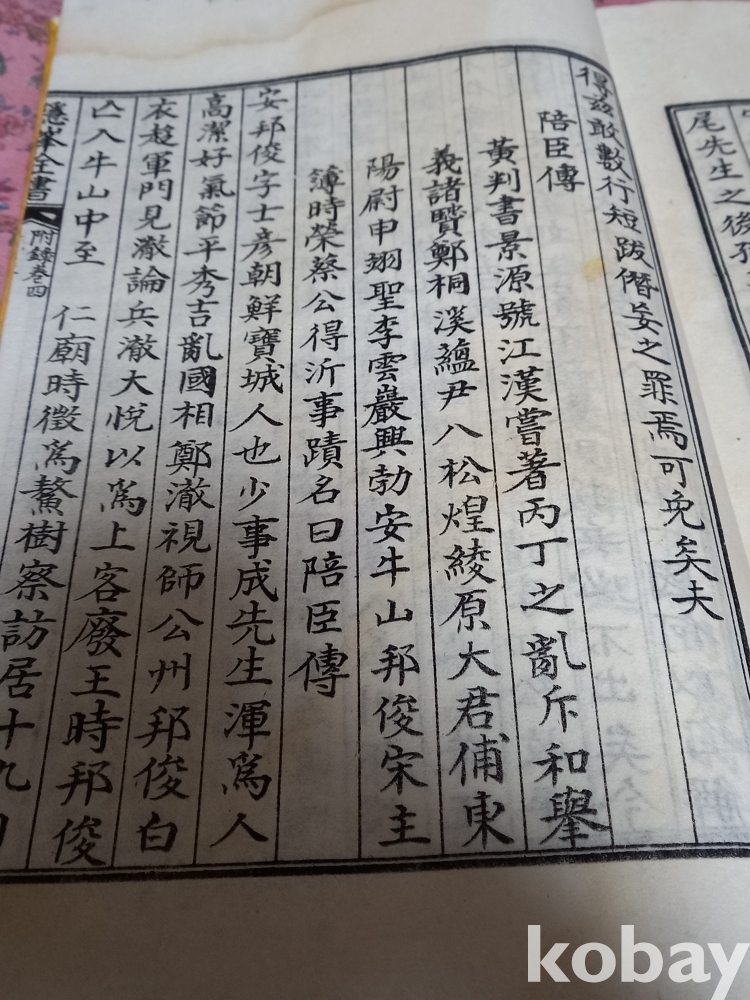 尾先生之後孫
得茲敢數行短跋僭妄之罪焉可免矣夫
陪臣傳
黃判書景源號江漢嘗著丙丁之亂斥和擧
義諸賢鄭桐溪蘊尹八松煌綾原大君俌東
陽尉申翊聖李雲巖興勃安牛山邦俊宋主
簿時榮蔡公得沂事蹟名曰陪臣傳
安邦俊字士彦朝鮮寶城人也少事成先生渾爲人
高潔好氣節平秀吉亂國相鄭澈視師公州邦俊白
衣趍軍門見澈論兵澈大悅以爲上客廢王時邦俊
亾入牛山中至 仁廟時徵爲鰲樹察訪居十九日
隱峯全書 附錄卷四
kobay